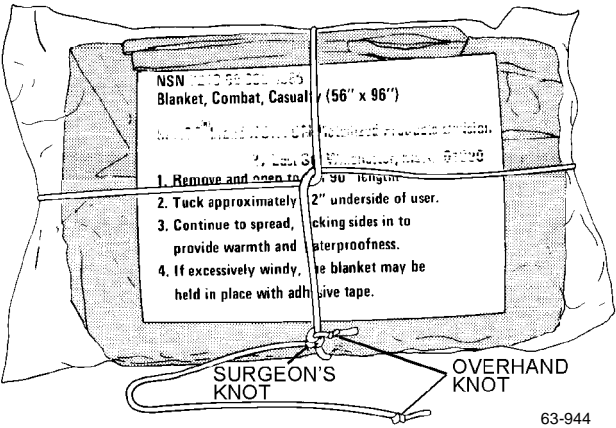 NSN
Blanket, Combat, Casualty (56" x 96")
Division
1. Remove and open to 96" length
2. Tuck approximately 2" underside of user.
3. Continue to spread, cking sides in to
provide warmth and aterproofness.
4. If excessively windy, he blanket may be
held in place with adh sive tape.
SURGEON'S
KNOT
OVERHAND
KNOT
63-944